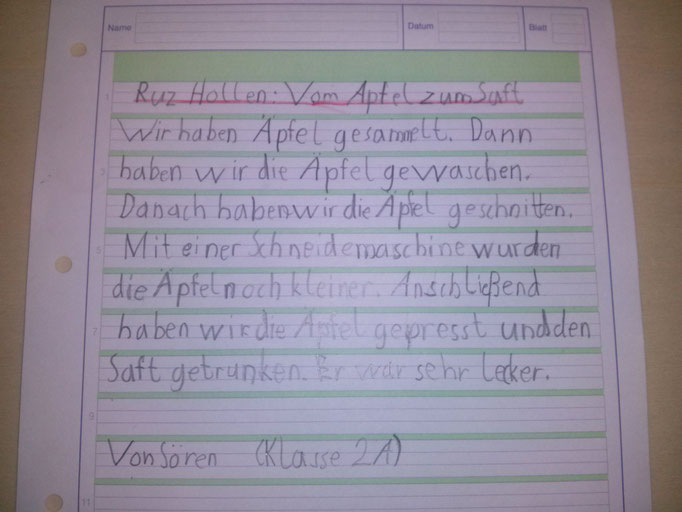 Name Datum Blatt
1 Ruz Hollen: Vom Apfel zum Saft
Wir haben Äpfel gesammelt. Dann
3 haben wir die Äpfel gewaschen.
Danach haben wir die Äpfel geschnitten.
5 Mit einer Schneidemaschine wurden
die Äpfel noch kleiner. Anschließend
7 haben wir die Äpfel gepresst und den
Saft getrunken. Er war sehr lecker.
9
Von Sören (Klasse 2A)
11